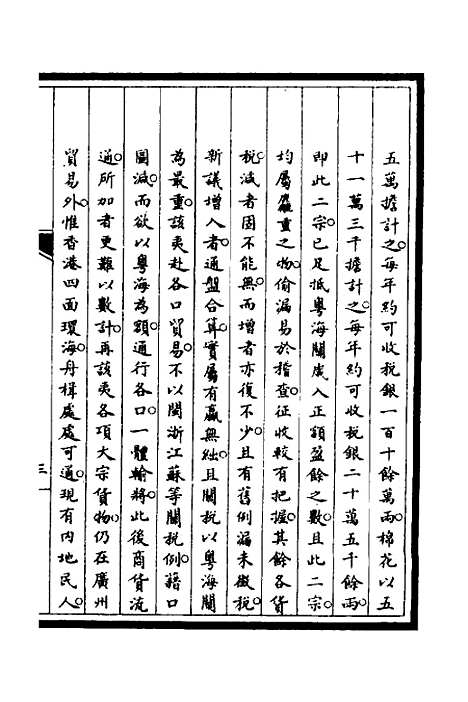 五萬擔計之每年約可收稅銀一百十餘萬兩棉花以五
十一萬三千擔計之每年約可收稅銀二十萬五千餘兩
即此二宗已足抵粵海關歲入正額盈餘之數且此二宗
均屬麤重之物偷漏易於稽查征收較有把握其餘各貨
稅減者固不能無而增者亦復不少且有舊例漏未徵稅
新議增入者通盤合算實屬有贏無絀且關稅以粵海關
為最重該夷赴各口貿易不以閩浙江蘇等關稅例藉口
圖減而欲以粵海為額通行各口一體輸將此後商貨流
通所加者更難以數計再該夷各項大宗貨物仍在廣州
貿易外惟香港四面環海舟楫處處可通現有內地民人
三